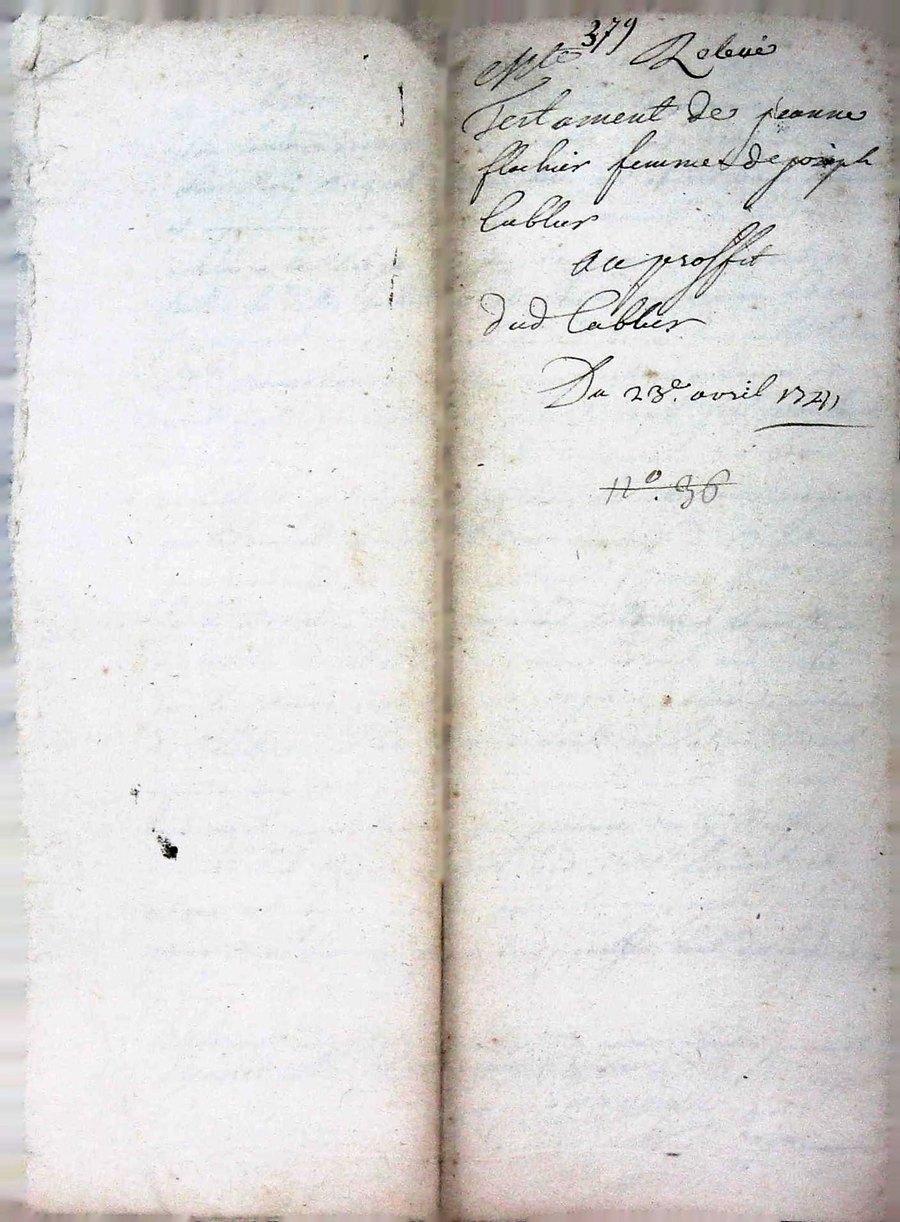 379
Relevé
Testament de jeanne
flachier femme de joseph
Cublier
au proffit
dud Cublier
Du 23e. avril 1741
n°. 36